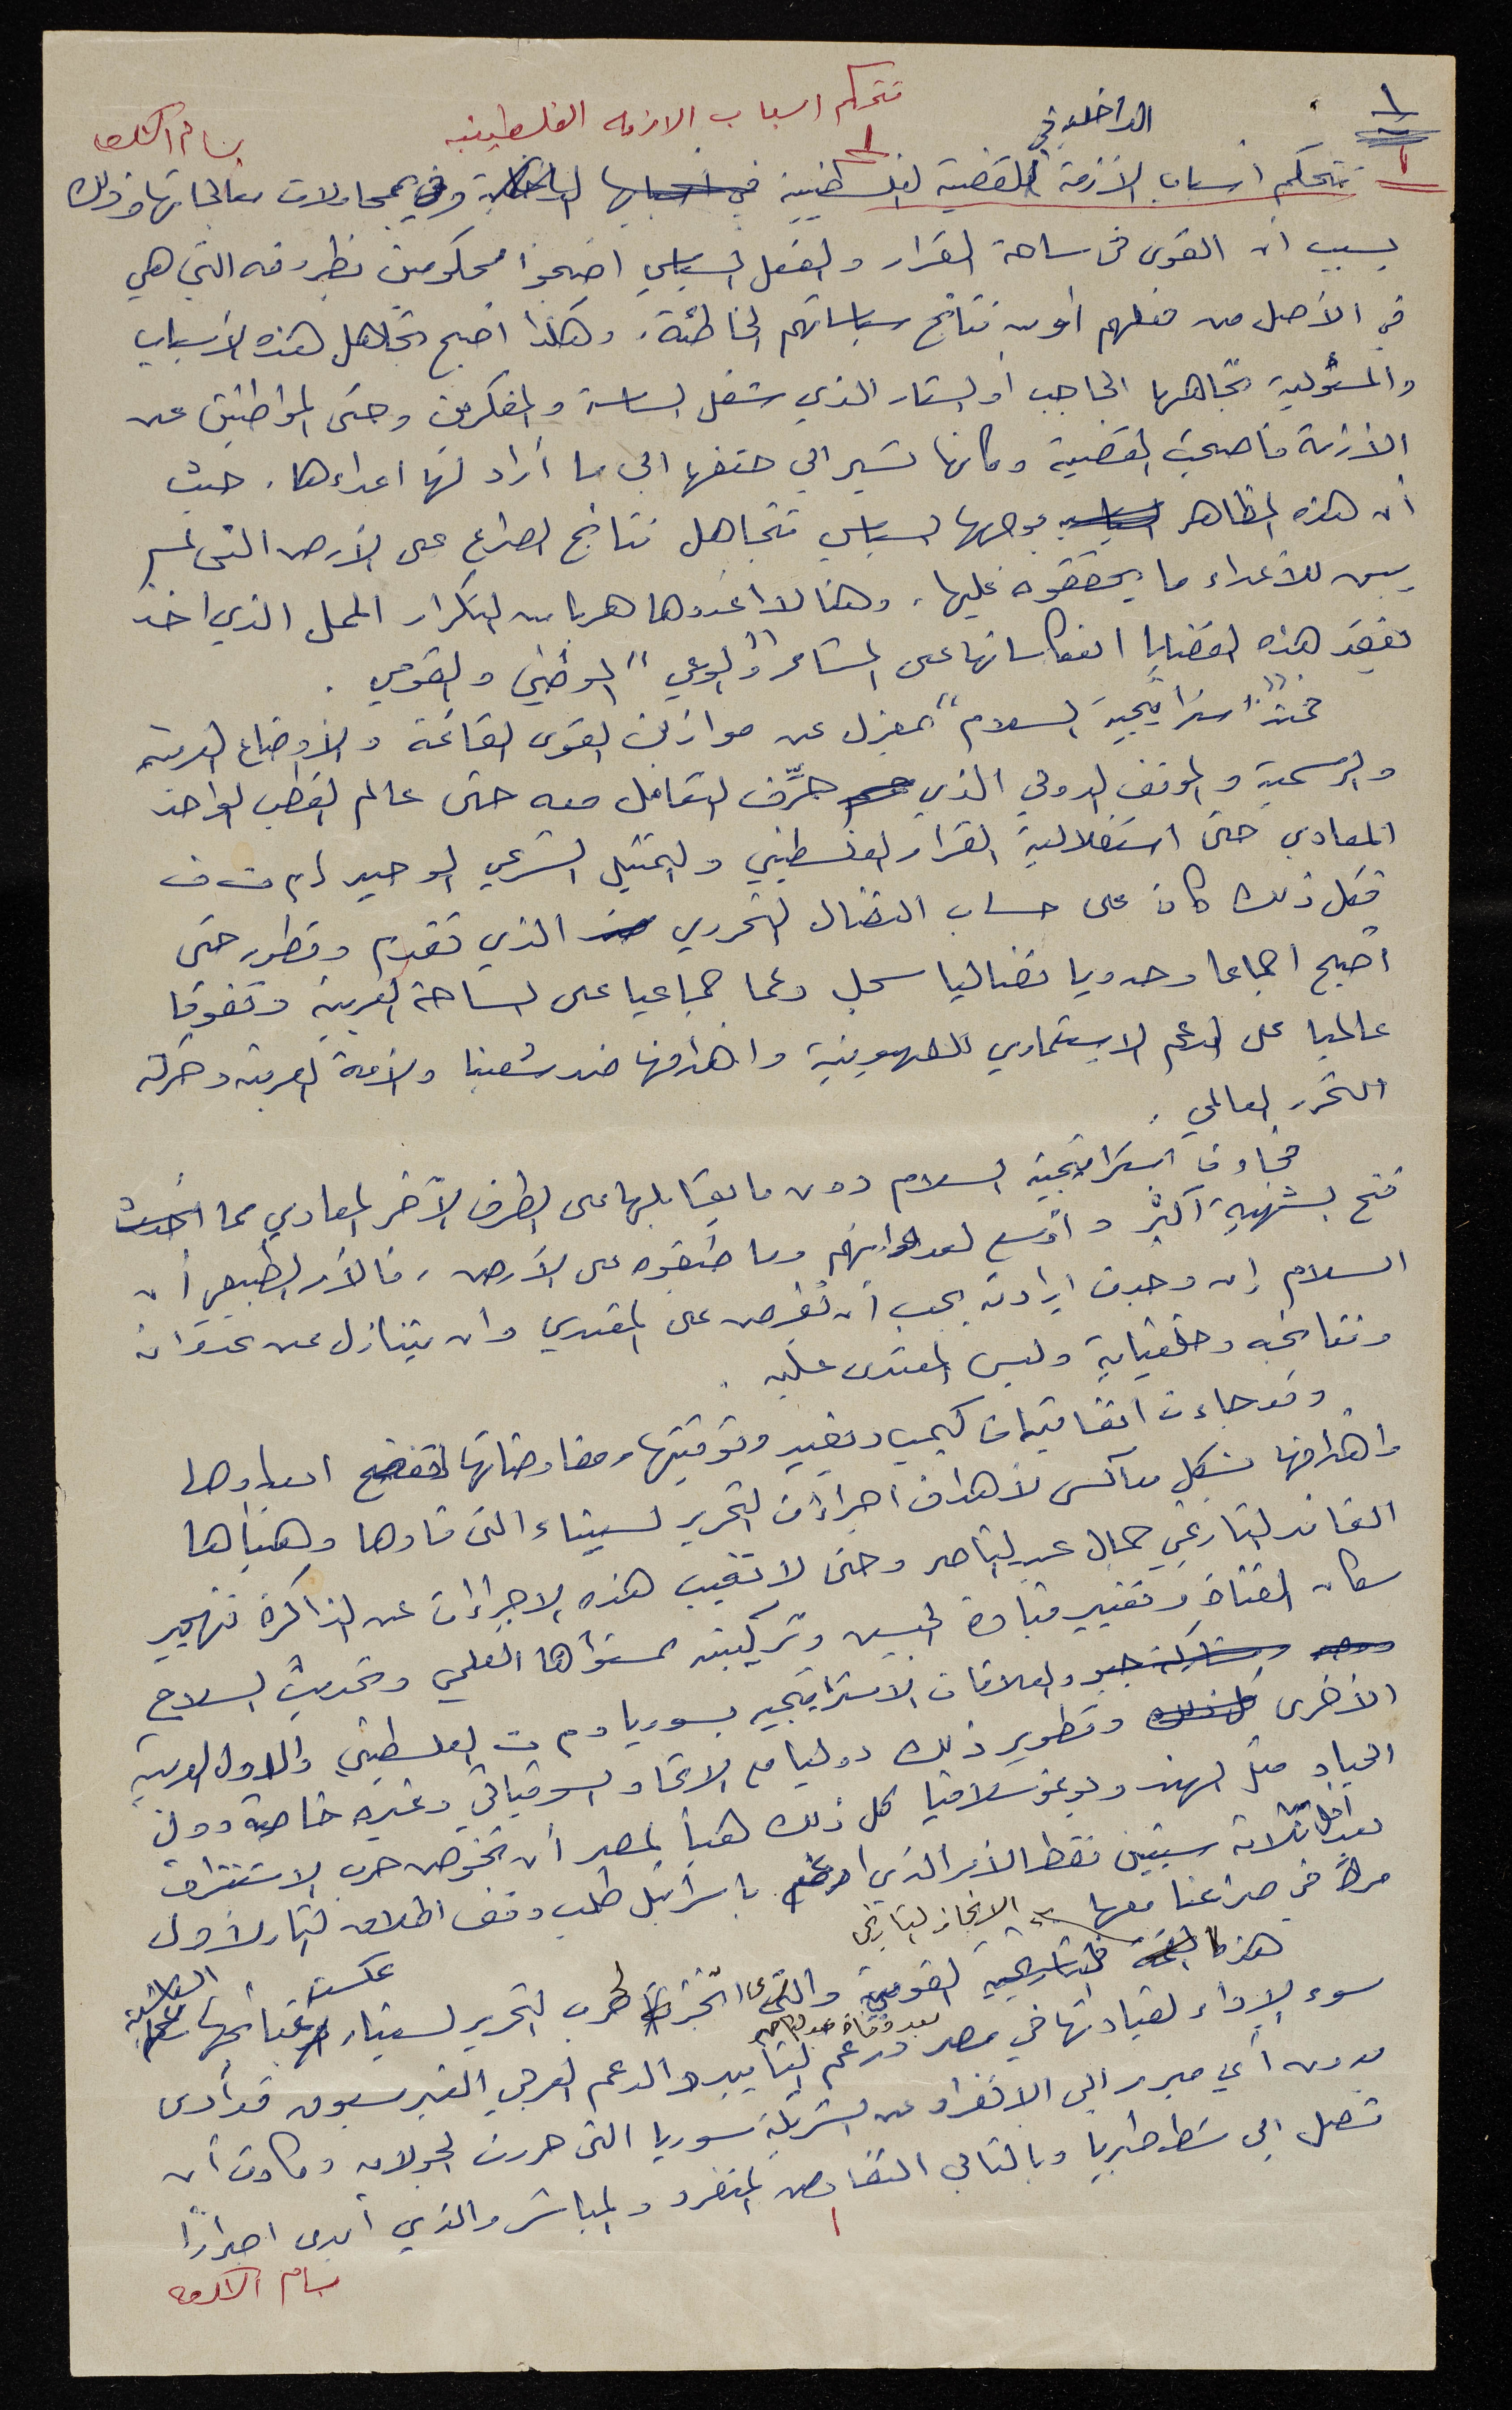 تتحكم اسباب الازمه الفلسطينيه
١
الداخلية في
بسام
تتحكم أسباب الأزمة القضية الفلسطينية وفي محاولات معالجاتها وذلك
بسبب أن القوى في ساحة القرار والفعل السياسي اضحوا محكومين بظروفه التي هي
في الأصل من فعلهم أو من نتائج سياساتهم الخاطئة. وهكذا أصبح تجاهل هذه الأسباب
والمسؤلية تجاهها الحاجب أو الستار الذي شغل الساسة والمفكرين وحتى المواطنين عن
الأزمة فأصبحت القضية وكأنها تسير الى حتفها الى ما أراد لها اعداءها. حيث
أن هذه المظاهر بوجهها السياسي تتجاهل نتائج الصراع على الأرض التي لم
يبق للأعداء ما يحققوه عليها. وهنا لا اعددها هربا من التكرار الممل الذي اخذ
يفقد هذه القضايا انعكاساتها على المشاعر والوعي "الوطني والقومي.
فمنذ "استراتيجية السلام" بمعزل عن موازين القوى القائمة والأوضاع العربية
والرسمية والموقف الدولي الذي حرّف التعامل معه حتى عالم القطب الواحد
المعادي حتى استقلالية القرار الفلسطيني والتمثيل الشرعي الوحيد ل م ت ف
فكل ذلك كان على حساب النضال التحرري الذي تقدم وتطور حتى
أصبح اجماعا وحدويا نضاليا سجل دعما جماعيا على الساحة العربية وتفوقا
عالميا على الدعم الاستعماري للصهيونية واهدافها ضد شعبنا والأمة العربية وحركة
التحرر العالمي.
فجاءت استراتيجية السلام دون ما يقابلها على الطرف الآخر المعادي مما
فتح الشهية أكثر وأوسع لعدوانهم وما حققوه على الأرض، فالأمر الطبيعي أن
السلام إن وجدت ارادته يجب أن تفرض على المعتدي وان يتنازل عن عدوانه
ونتائجه وخلفياته وليس المعتدى عليه.
وقد جاءت اتفاقيات كمب ديفيد وتوقيتها ومفاوضاتها لتفضح ابعادها
واهدافها بشكل معاكس لأهداف اجراءات التحرير لسيناء التي قادها وهيأها
القائد التاريخي جمال عبد الناصر وحتى لا تغيب هذه الاجراءات عن الذاكرة تهجير
سكان القناة وتغيير قيادة الجيش وتركيبته بمستواها العلمي وتحديث السلاح
والعلاقات الاستراتيجيه بسوريا و م ت الفلسطيني والدول العربية
الأخرى وتطوير ذلك دوليا مع الاتحاد السوفياتي وغيره خاصة دول
الحياد مثل الهند ويوغوسلافيا كل ذلك هيأ لمصر أن تخوض حرب الاستنزاف
بعد أقل من ثلاثة سنين فقط الأمر الذي باسرائيل طلب وقف اطلاق النار لأول
مرة في صراعنا معها الانجاز التاريخي
هذا القومية والتي انجزت لحرب التحرير لسيناء عكست نتائجها
سوء الاداء لقيادتها في مصر بعد وفاة عبد الناصر ورغم التأييد والدعم العربي الغير مسبوق قد أدى
بدون أي مبرر الى الانفراد عن الشريكة سوريا التي حررت الجولان وكادت أن
تصل الى شط طبريا وبالتالي التفاوض المنفرد والمباشر والذي أبدى اصرارًا
١
بسام